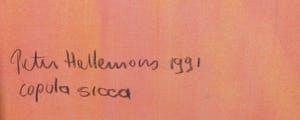 Peter Hellemons 1991
copula sicca